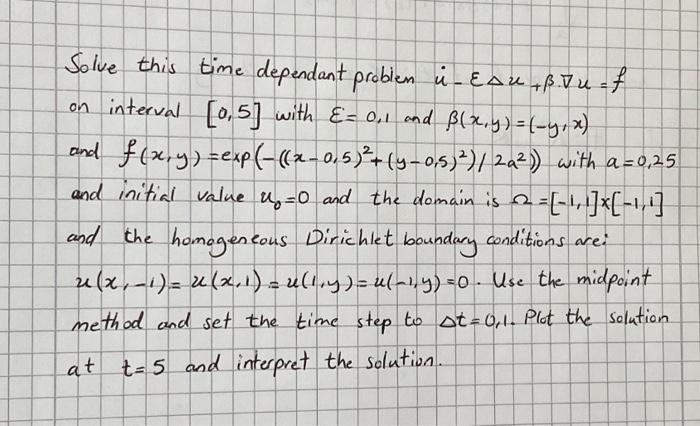 Solve this time dependant problem u̇ - ε∆u + β.∇u = f
on interval [0,5] with ε = 0,1 and β(x,y) = (-y, x)
and f(x,y) = exp(-((x-0,5)²+(y-0,5)²)/2a²)) with a = 0,25
and initial value u₀=0 and the domain is Ω = [-1,1]x[-1,1]
and the homogeneous Dirichlet boundary conditions are:
u(x,-1) = u(x,1) = u(1,y) = u(-1,y) = 0. Use the midpoint
method and set the time step to ∆t = 0,1. Plot the solution
at t=5 and interpret the solution.